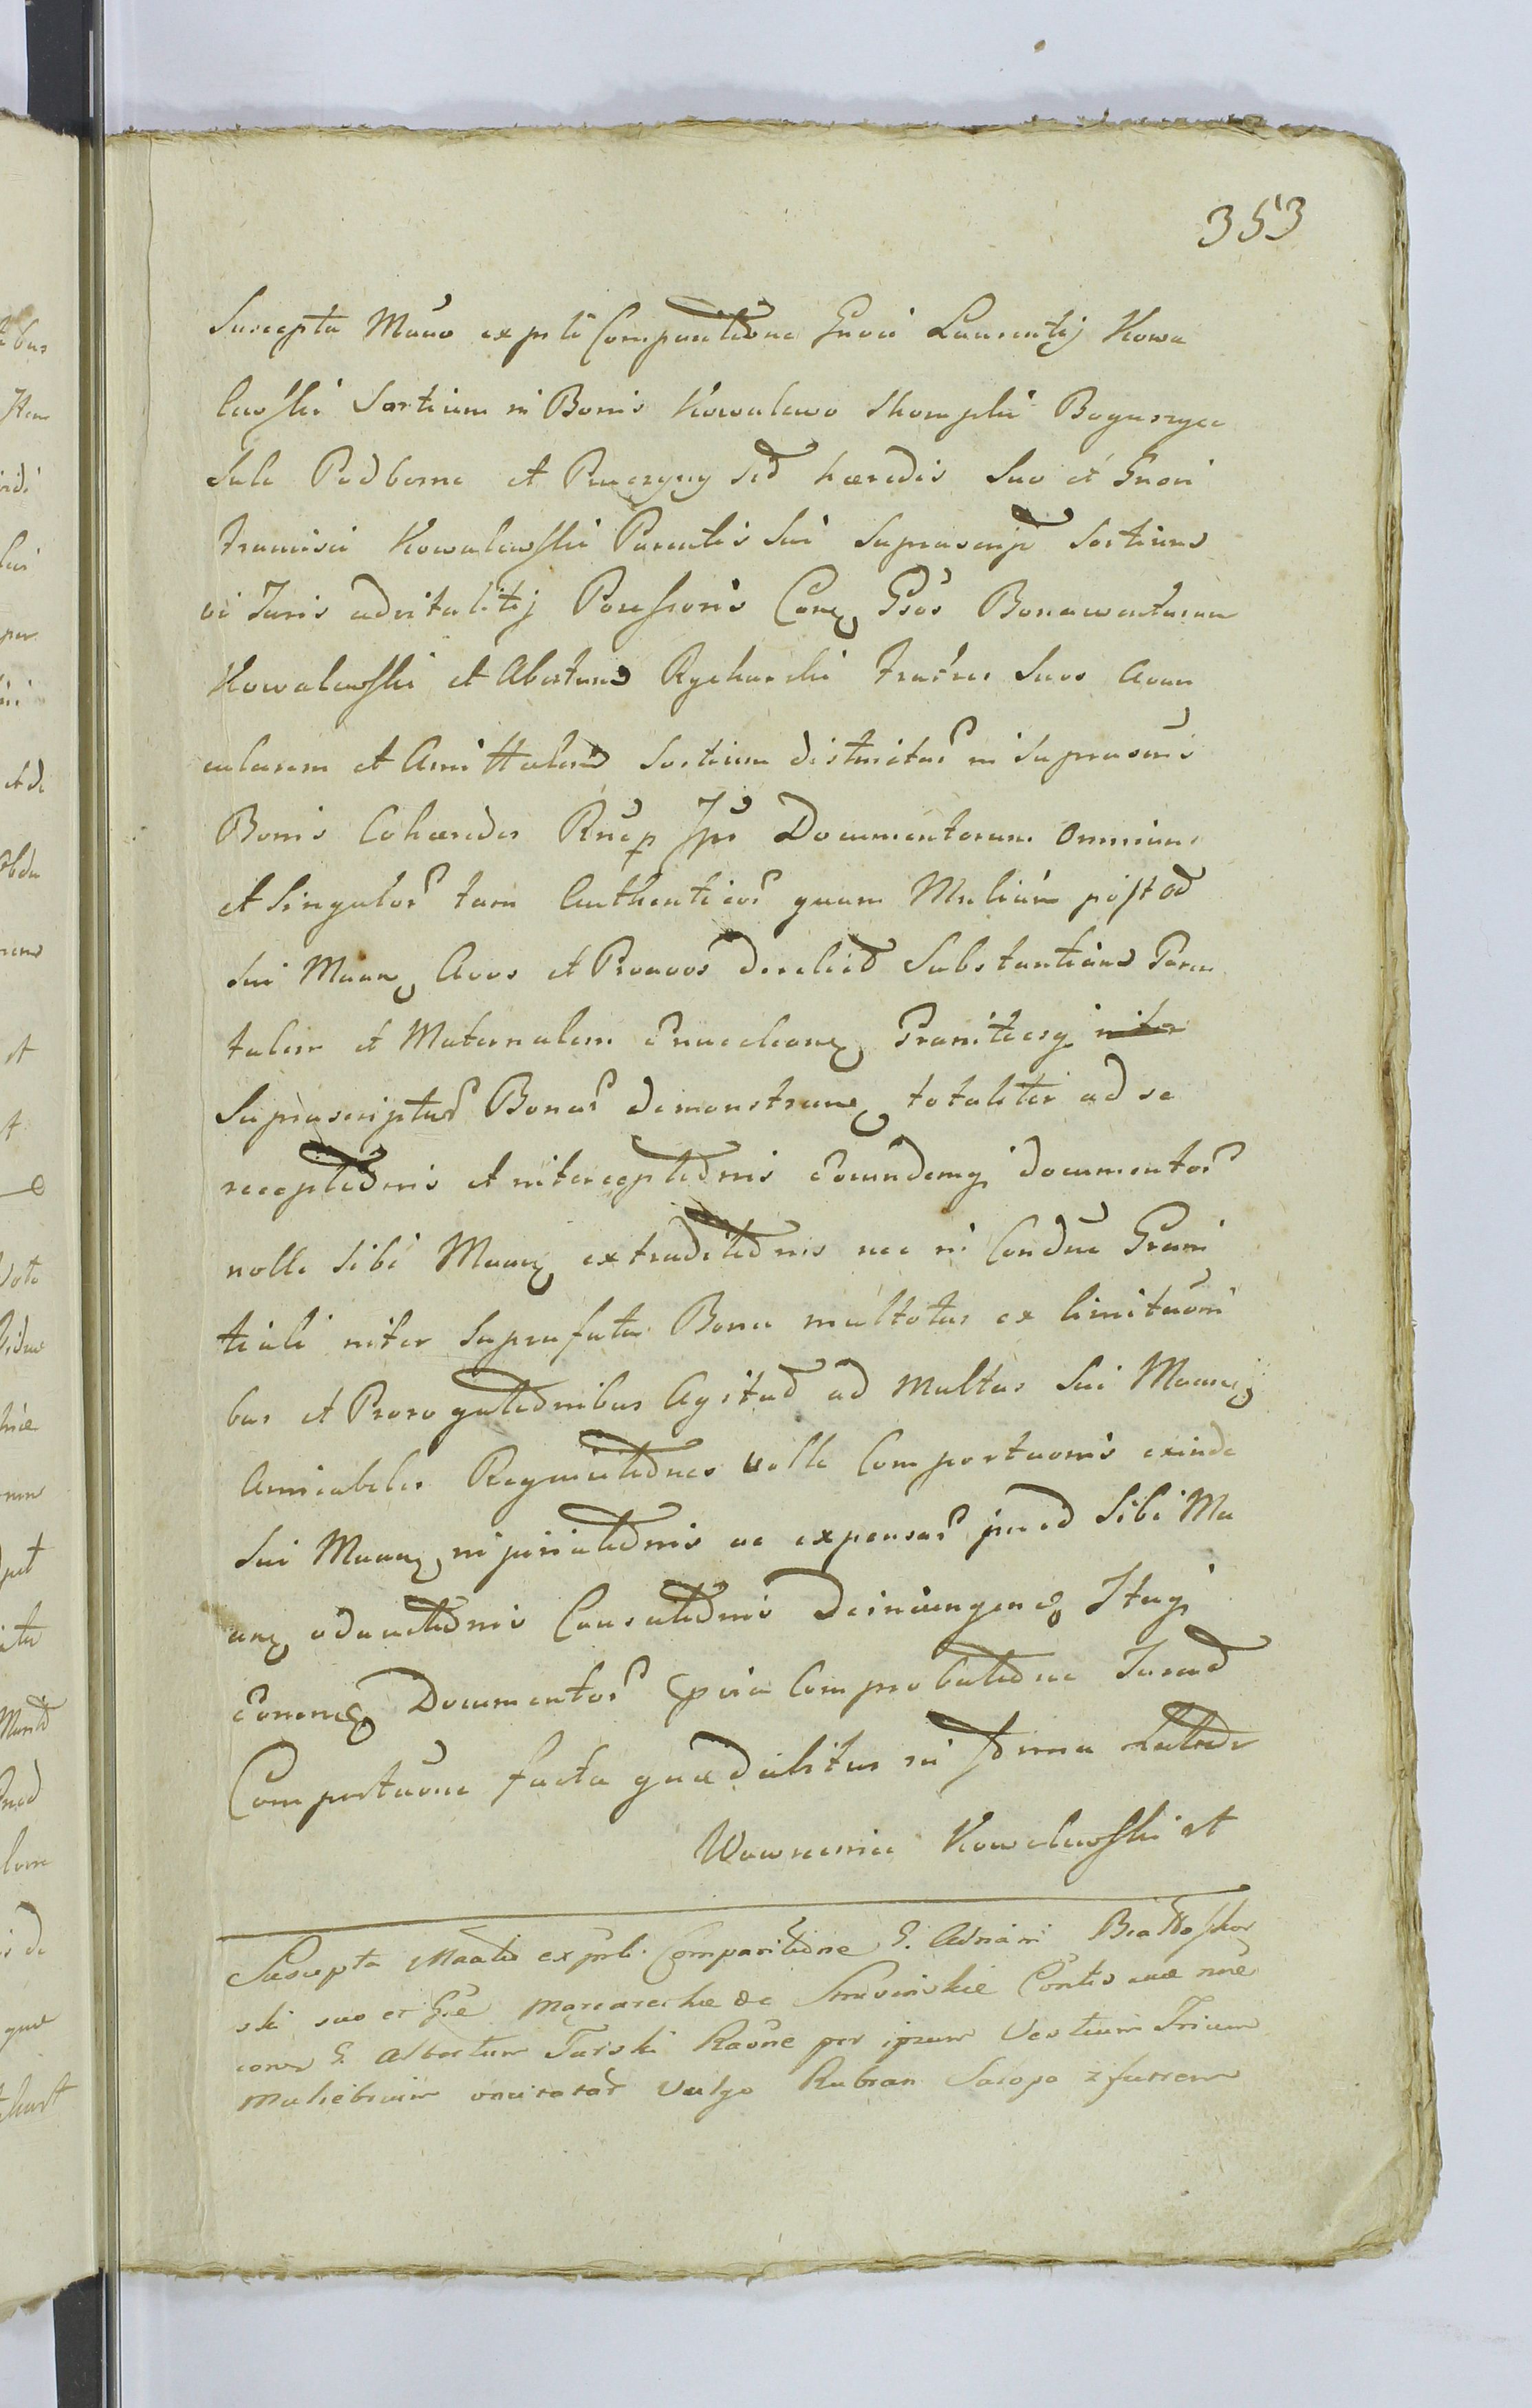 353
Suscepta Mano ex prli Comparitione Gnoii Laurentij Kowa
lewski Sortium in Bonis Kowalewo Skorupki Boguszyce
Sule Podborne et Pruszyny sitt hæredis suo et Gnoii
Francisci Kowalewski Parentis sui Suprascrip Sortium
vi Juris advitalitij Possessoris Cong Gsos Bonawenturam
Kowalewski et Albertum Rychurski Fratres suos Avun
cularem et Amittalem Sortium distinctar in Suprascris
Bonis Cohæredes Rnep Ipos Documentorum omnium
et Singulor tam Authenticor quam Mulium post
sui Maan Avos et Proavos derelict Substantiam Paren
talem et Maternalem Granitiesq inter
Suprascriptar Bonar demonstran totaliter ad se
receptionis et interceptionis Eorundemq documentor
nolle sibi Maan extraditionis nec in Condne Grani
tiali inter Suprafata Bona multotas ex limitaoni
bus et Prorogationibus Agitat ad multas sui Maan
Amicabiles Requisitiones velle Comportaonis exinde
sui Maan injuriationis ac expensar sibi Ma
an adauctionis Causationis Deiniungen Itaq
Eorum Documentor pvia Comprobatione Jurand
Comportaone facta quædabitur in Forma Latiori
Wawrzeniec Kowalewski et
Suscepta Maatio ex prli Comparitione G. Adriani Białłoskor
ski suo et Gse Margarethæ de Conlis suæ nne
conn G. Albertum Turski Raone per ipsum Vestium Trium
Muliebrium vulgo Kubran Salopa z futrem